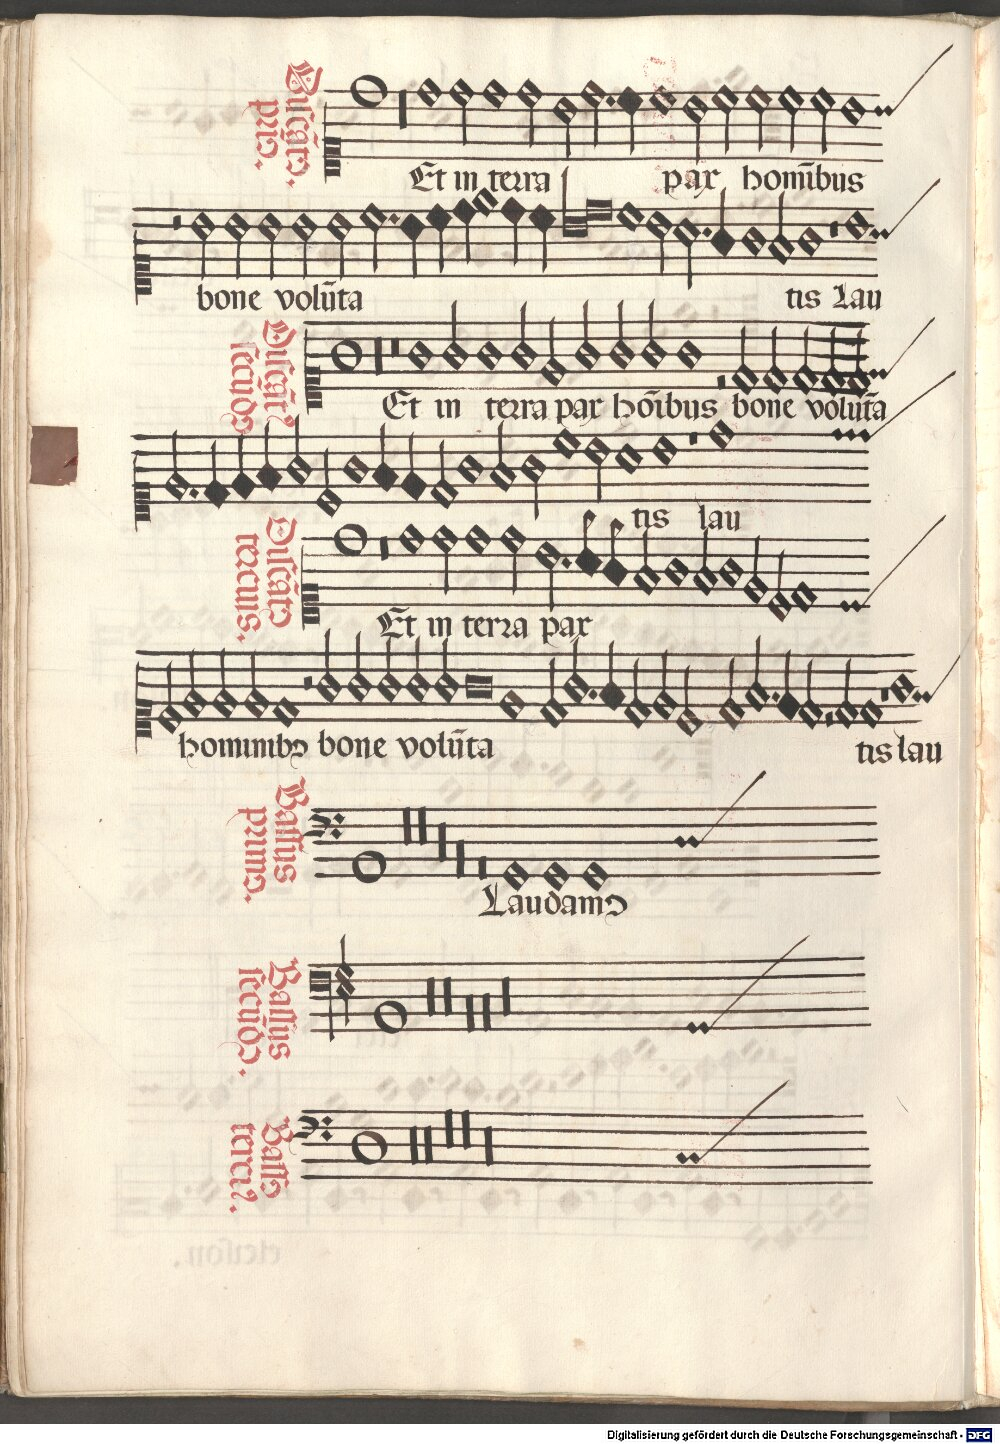 Discāt9
prim9.
Et in terra pax homībus
bone volūta tis Lau
Discāt9
secūd9
Et in terra pax hoībus bone volūta
tis lau
Discāt9
tercius.
Et in terra pax
hominib9 bone volūta tis lau
Bassus
prim9.
Laudam9
Bassus
secūd9.
Bass9
terci9.
eleyson.
Digitalisierung gefördert durch die Deutsche Forschungsgemeinschaft - DFG